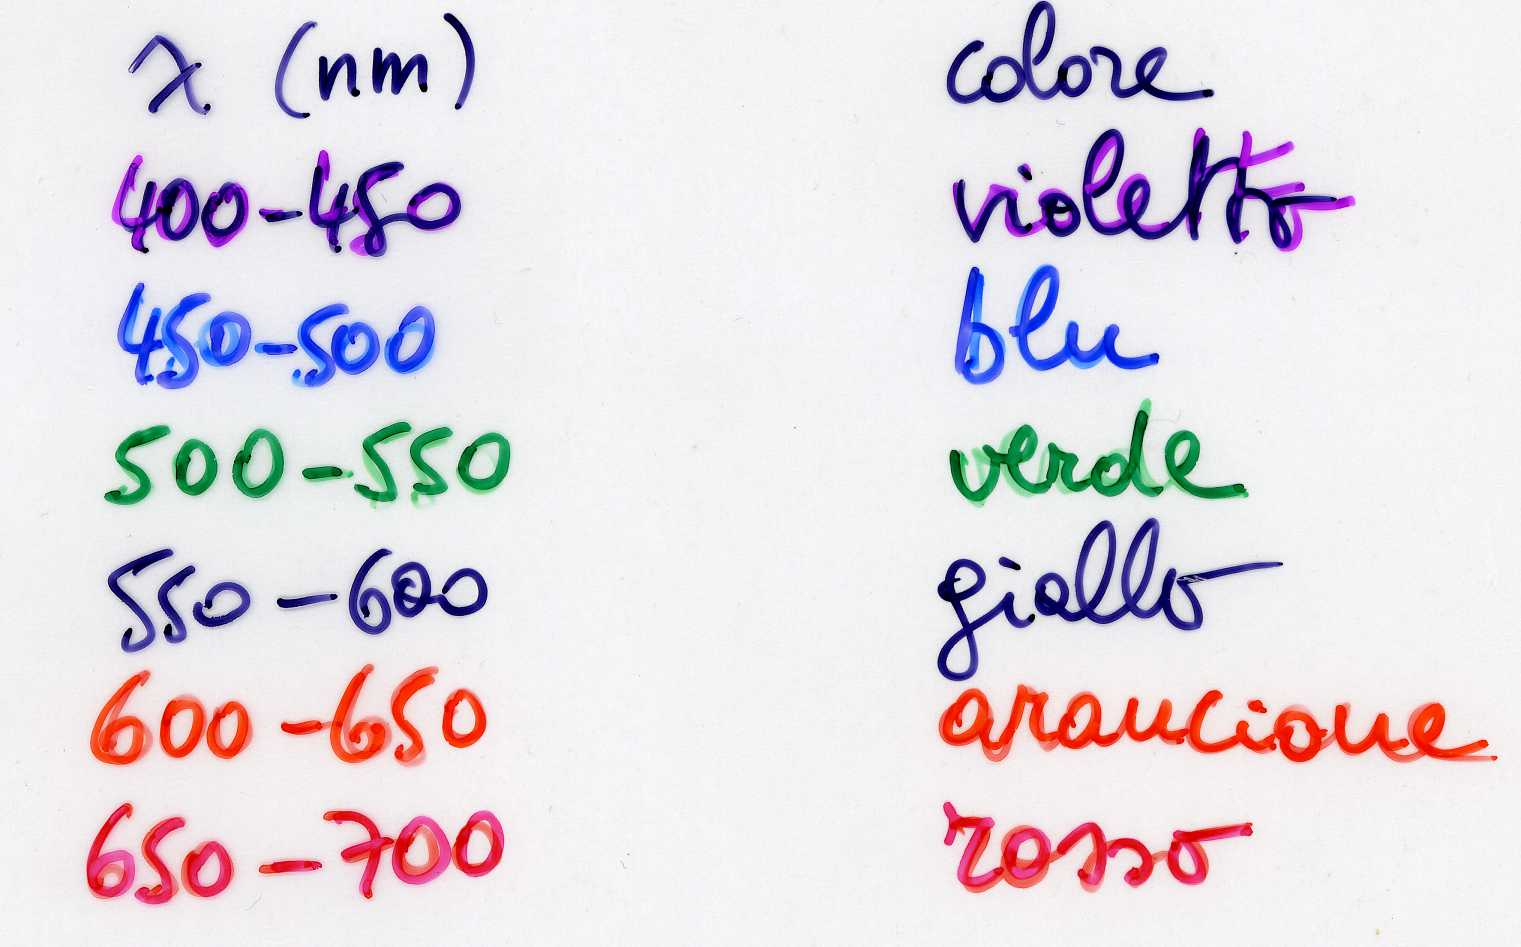 λ (nm) colore
400-450 violetto
450-500 blu
500-550 verde
550-600 giallo
600-650 arancione
650-700 rosso